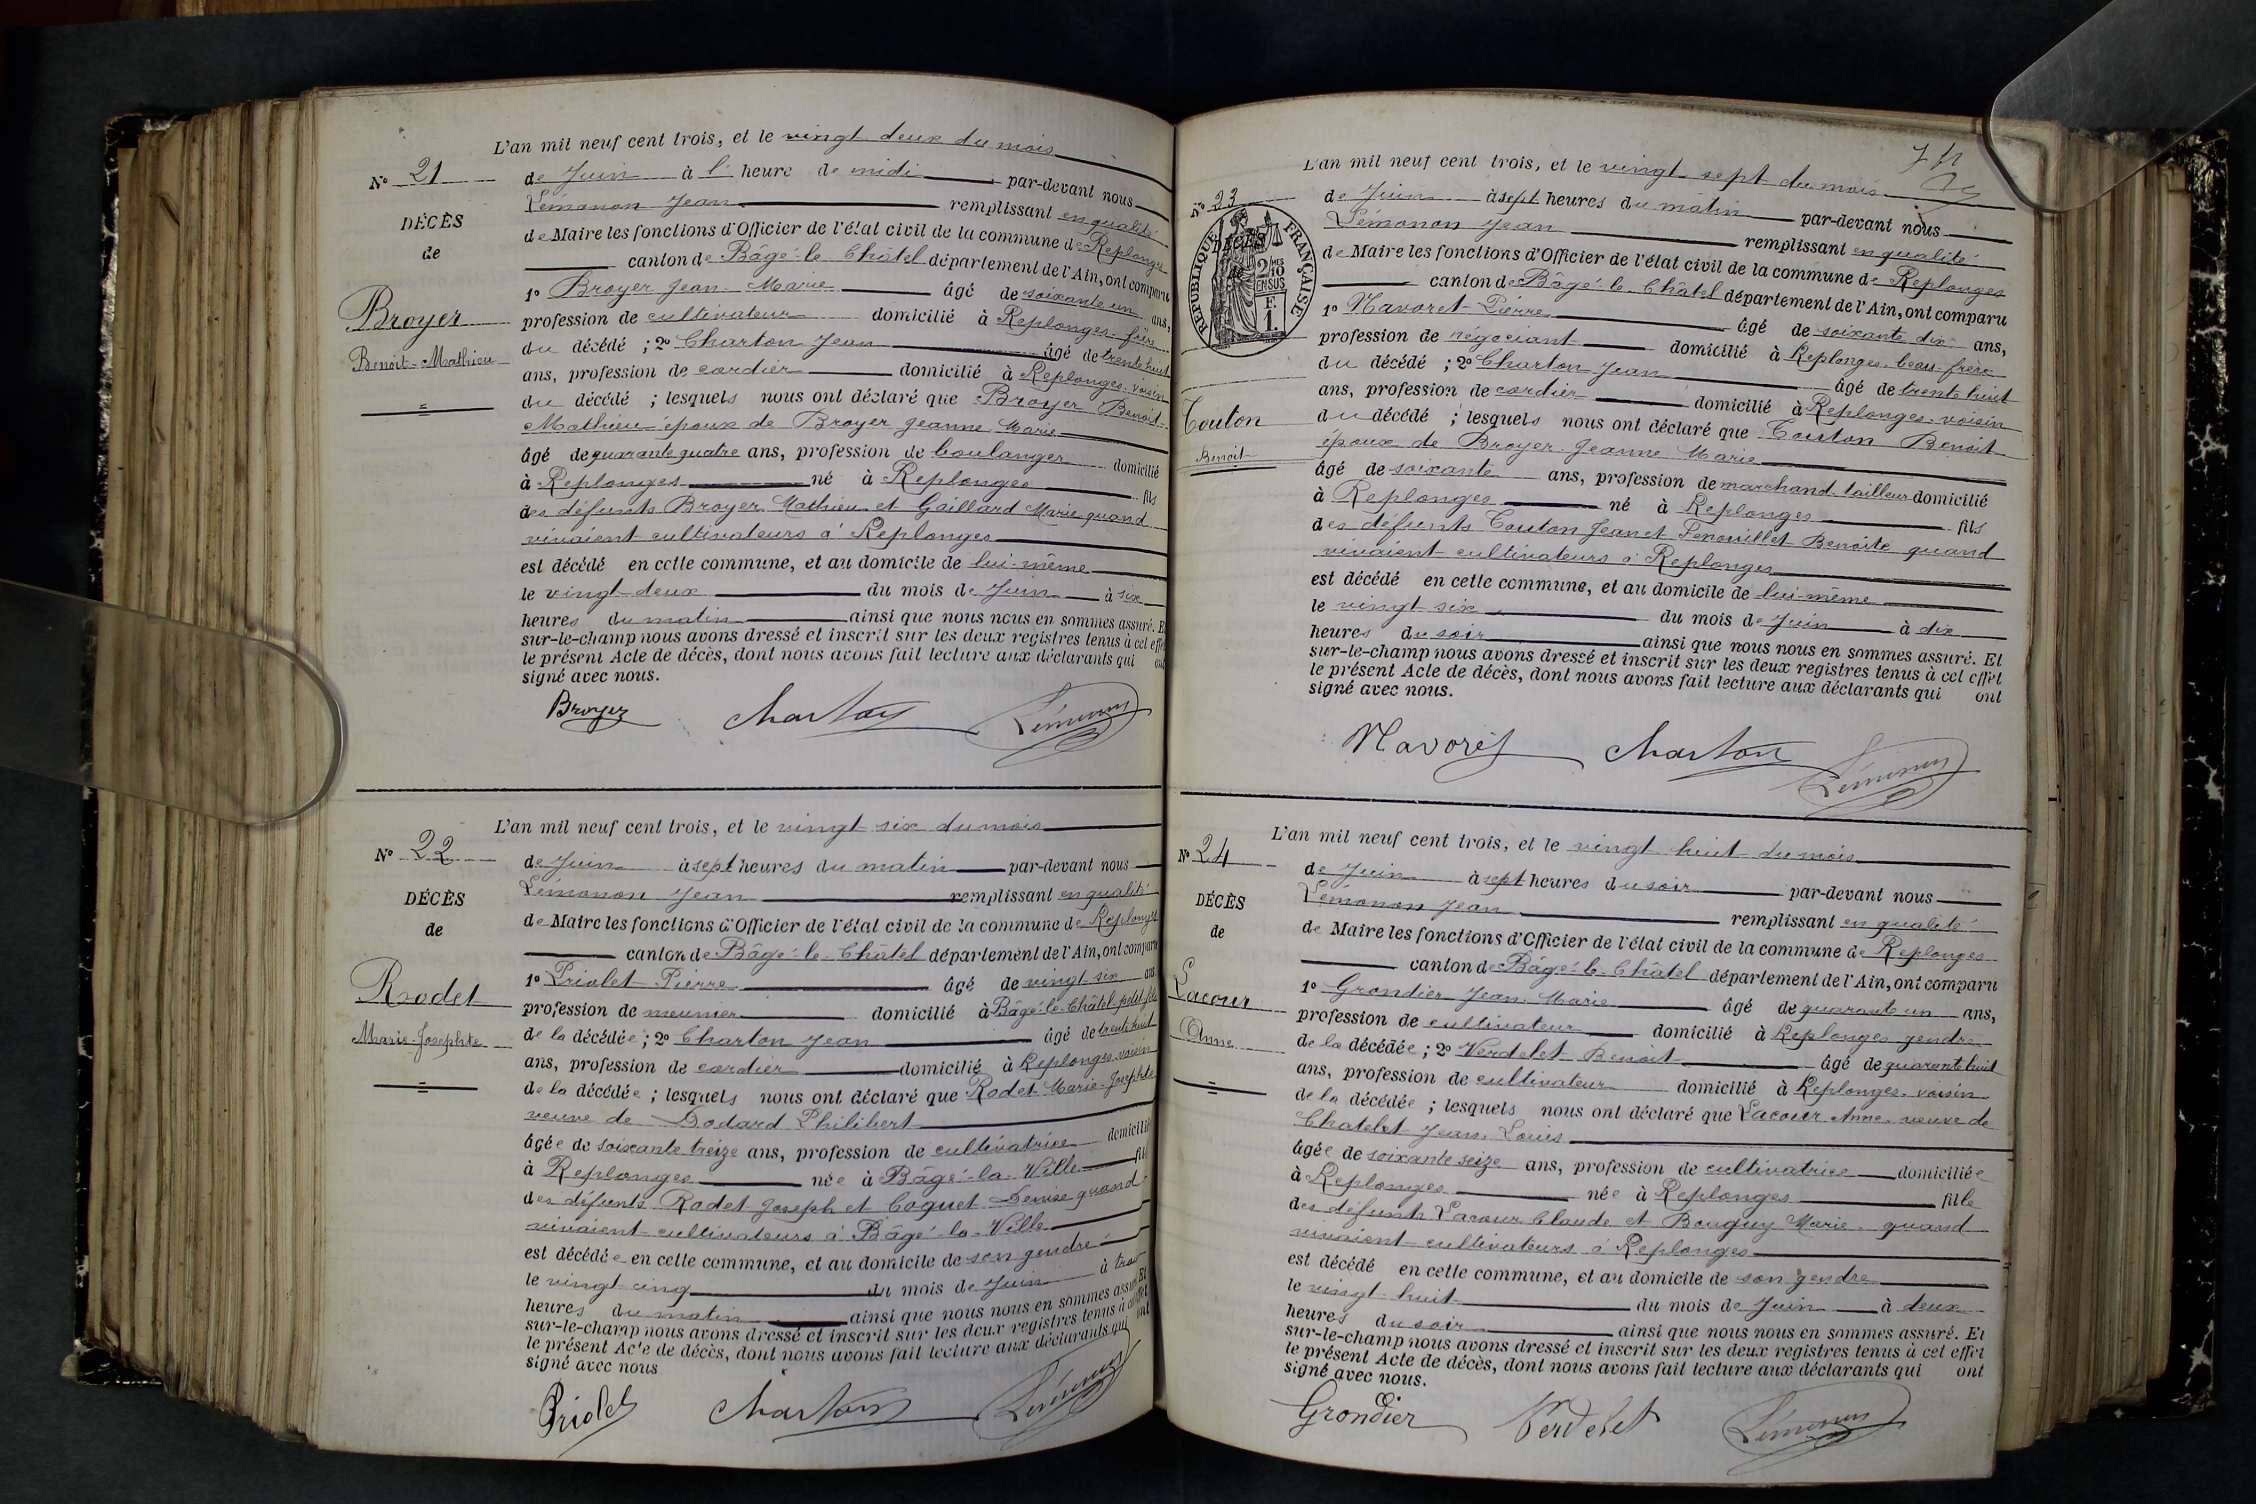 L'an mil neuf cent trois, et le vingt deux du mois
N° 21
de Juin à l' heure de midi par-devant nous
Lémonon Jean remplissant en qualité
DÉCÈS
de Maire les fonctions d'Officier de l'état civil de la commune de Replonges
de
canton de Bâgé-le-Châtel département de l'Ain, ont comparu
1° Broyer Jean-Marie âgé de soixante un ans,
Broyer
profession de cultivateur domicilié à Replonges frère
Benoit-Mathieu
du décédé ; 2° Charton Jean âgé de trente huit
ans, profession de cordier domicilié à Replonges voisin
du décédé ; lesquels nous ont déclaré que Broyer Benoit-
Mathieu époux de Broyer Jeanne Marie
âgé de quarante quatre ans, profession de boulanger domicilié
à Replonges né à Replonges fils
des défunts Broyer Mathieu et Gaillard Marie quand
vivaient cultivateurs à Replonges
est décédé en cette commune, et au domicile de lui-même
le vingt-deux du mois de Juin à six
heures du matin ainsi que nous nous en sommes assuré. Et
sur-le-champ nous avons dressé et inscrit sur les deux registres tenus à cet effet
le présent Acte de décès, dont nous avons fait lecture aux déclarants qui ont
signé avec nous.
Broyer Charton Lémonon
L'an mil neuf cent trois, et le vingt six du mois
N° 22
de Juin à sept heures du matin par-devant nous
Lémonon Jean remplissant en qualité
DÉCÈS
de Maire les fonctions d'Officier de l'état civil de la commune de Replonges
de
canton de Bâgé-le-Châtel département de l'Ain, ont comparu
1° Priolet Pierre âgé de vingt six ans
Rodet
profession de meunier domicilié à Bâgé-le-Châtel petit fils
Marie-Josephte
de la décédée ; 2° Charton Jean âgé de trente huit
ans, profession de cordier domicilié à Replonges voisin
de la décédée ; lesquels nous ont déclaré que Rodet Marie-Josephte
veuve de Dodard Philibert
âgée de soixante treize ans, profession de cultivatrice domicilié
à Replonges née à Bâgé-la-Ville fille
des défunts Rodet Joseph et Coquet Denise quand
vivaient cultivateurs à Bâgé-la-Ville
est décédée en cette commune, et au domicile de son gendre
le vingt cinq du mois de Juin à trois
heures du matin ainsi que nous nous en sommes assuré. Et
sur-le-champ nous avons dressé et inscrit sur les deux registres tenus à cet effet
le présent Acte de décès, dont nous avons fait lecture aux déclarants qui ont
signé avec nous
Priolet Charton Lémonon
L'an mil neuf cent trois, et le vingt sept du mois
N° 23
de Juin à sept heures du matin par-devant nous
Lémonon Jean remplissant en qualité
RÉPUBLIQUE FRANÇAISE
2 MES 10 EN SUS
F. 1.
DÉCÈS
de Maire les fonctions d'Officier de l'état civil de la commune de Replonges
canton de Bâgé-le-Châtel département de l'Ain, ont comparu
1° Navoret Pierre âgé de soixante dix ans,
profession de négociant domicilié à Replonges beau-frère
du décédé ; 2° Charton Jean âgé de trente huit
ans, profession de cordier domicilié à Replonges voisin
Touton
du décédé ; lesquels nous ont déclaré que Touton Benoit
Benoit
époux de Broyer Jeanne Marie
âgé de soixante ans, profession de marchand tailleur domicilié
à Replonges né à Replonges fils
des défunts Touton Jean et Fenouillet Benoite quand
vivaient cultivateurs à Replonges
est décédé en cette commune, et au domicile de lui-même
le vingt six du mois de Juin à dix
heures du soir ainsi que nous nous en sommes assuré. Et
sur-le-champ nous avons dressé et inscrit sur les deux registres tenus à cet effet
le présent Acte de décès, dont nous avons fait lecture aux déclarants qui ont
signé avec nous.
Navoret Charton Lémonon
L'an mil neuf cent trois, et le vingt huit du mois
N° 24
de Juin à sept heures du soir par-devant nous
Lémonon Jean remplissant en qualité
DÉCÈS
de Maire les fonctions d'Officier de l'état civil de la commune de Replonges
de
canton de Bâgé-le-Châtel département de l'Ain, ont comparu
1° Grondier Jean-Marie âgé de quarante un ans,
Lacour
profession de cultivateur domicilié à Replonges gendre
Anne
de la décédée ; 2° Verdelet Benoit âgé de quarante huit
ans, profession de cultivateur domicilié à Replonges voisin
de la décédée ; lesquels nous ont déclaré que Lacour Anne veuve de
Chatelet Jean-Louis
âgée de soixante seize ans, profession de cultivatrice domiciliée
à Replonges née à Replonges fille
des défunts Lacour Claude et Bouguy Marie quand
vivaient cultivateurs à Replonges
est décédé en cette commune, et au domicile de son gendre
le vingt huit du mois de Juin à deux
heures du soir ainsi que nous nous en sommes assuré. Et
sur-le-champ nous avons dressé et inscrit sur les deux registres tenus à cet effet
le présent Acte de décès, dont nous avons fait lecture aux déclarants qui ont
signé avec nous.
Grondier Verdelet Lémonon